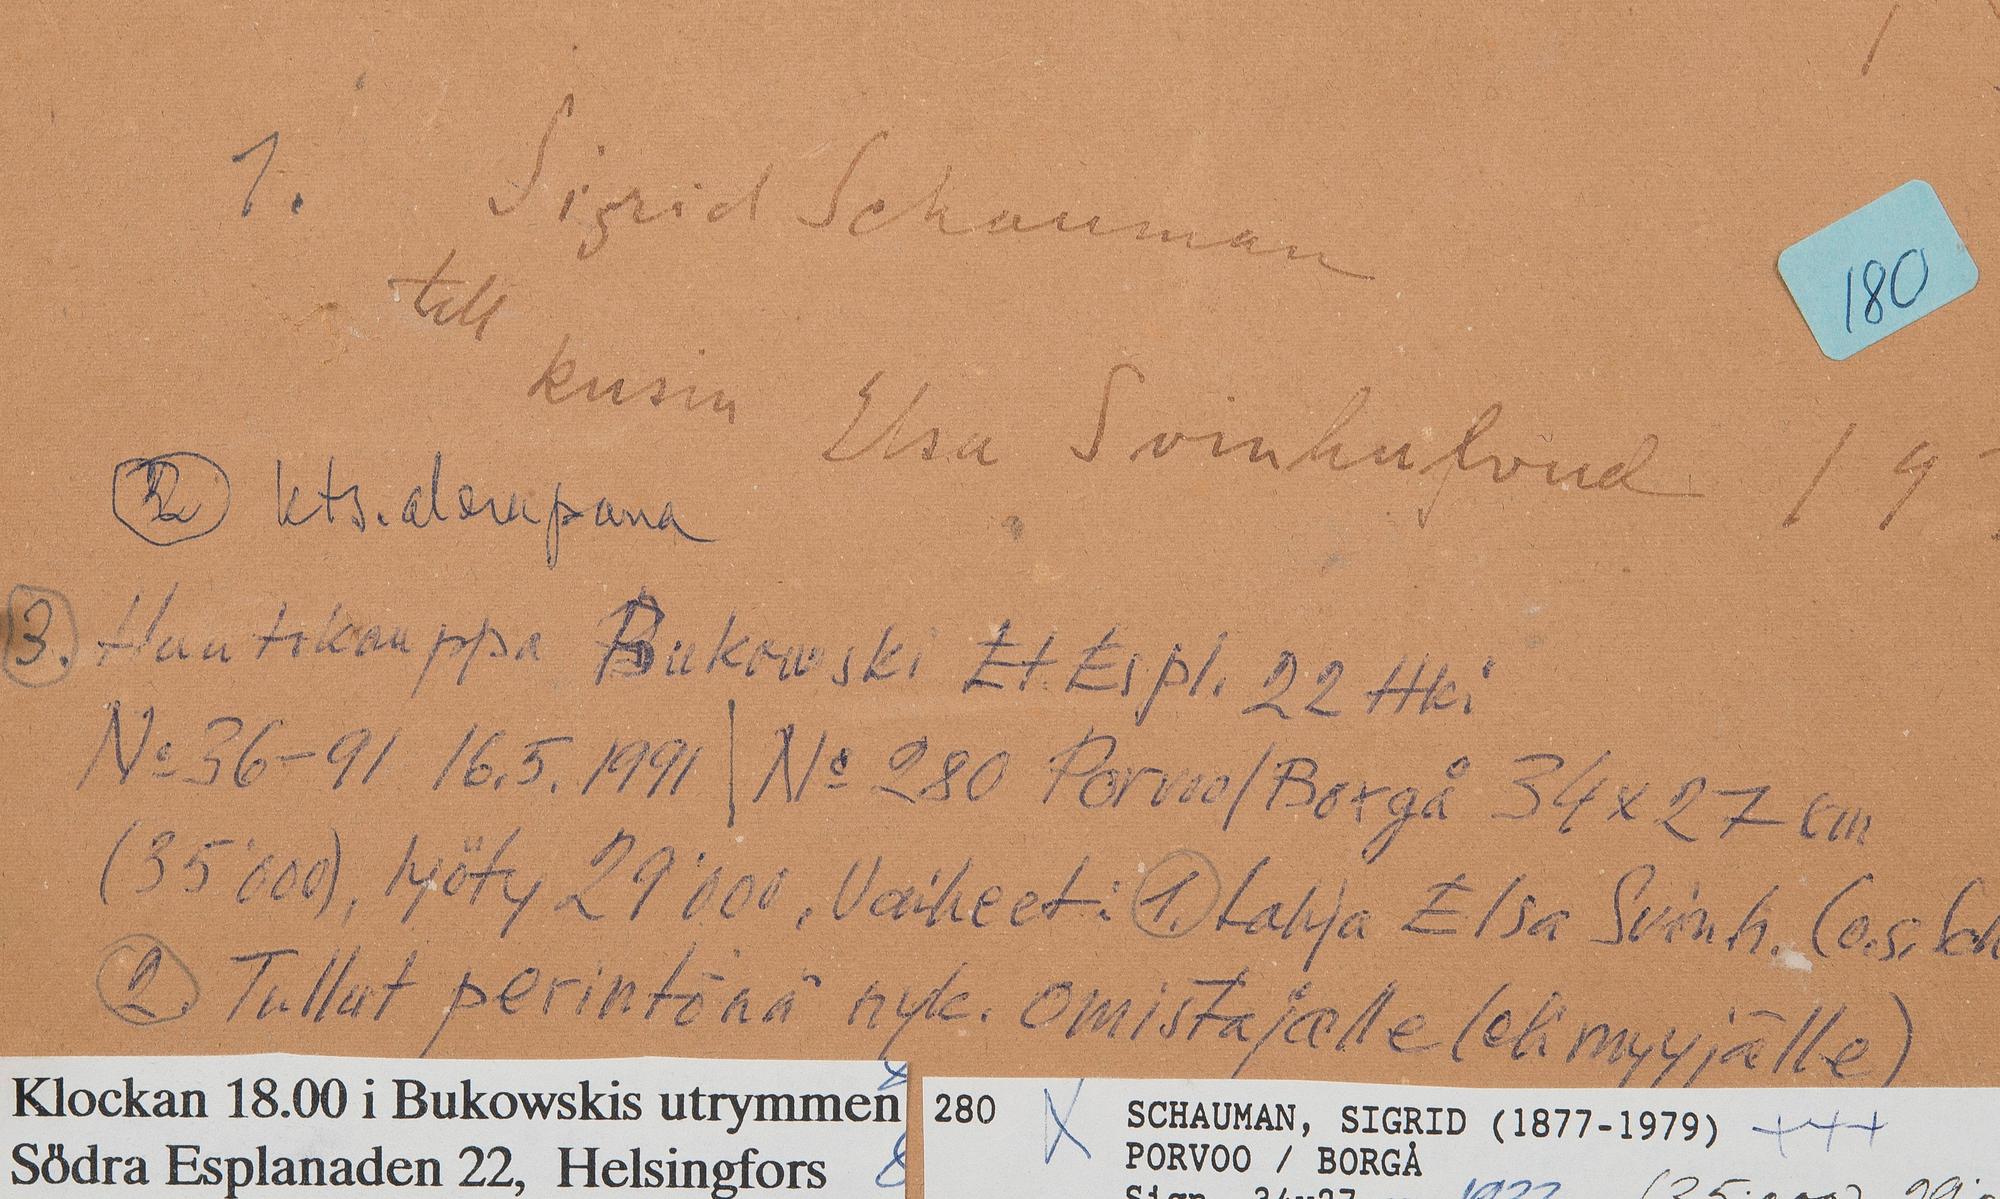 1. Sigrid Schauman
till
180
kusin Elsa Svinhufvud 19
2. kts. alempana
3. Huutokauppa Bukowski Et. Espl. 22 Hki
No 36-91 16.5.1991 | No 280 Porvoo/Borgå 34x27 cm
(35'000), lyöty 29'000, Vaiheet: 1. Lahja Elsa Svinh. (o.s. Sch
2. Tullut perintönä nyk. omistajalle (eli myyjälle)
Klockan 18.00 i Bukowskis utrymmen
Södra Esplanaden 22, Helsingfors
280 X SCHAUMAN, SIGRID (1877-1979) +++
PORVOO / BORGÅ
Sign. 34x27